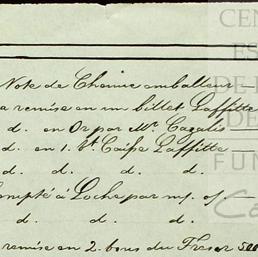 CEN
ES
DE
Note de Chemin emballeur
a remise en un billet Laffitte
d. en Or par Mr. Cazalis
d. en 1. Bt. Caisse Laffitte
d. d. d. d.
FUN
compté à Loche par m/ of.
d. d. d.
Ca
remise en 2. bons du Tresor 500